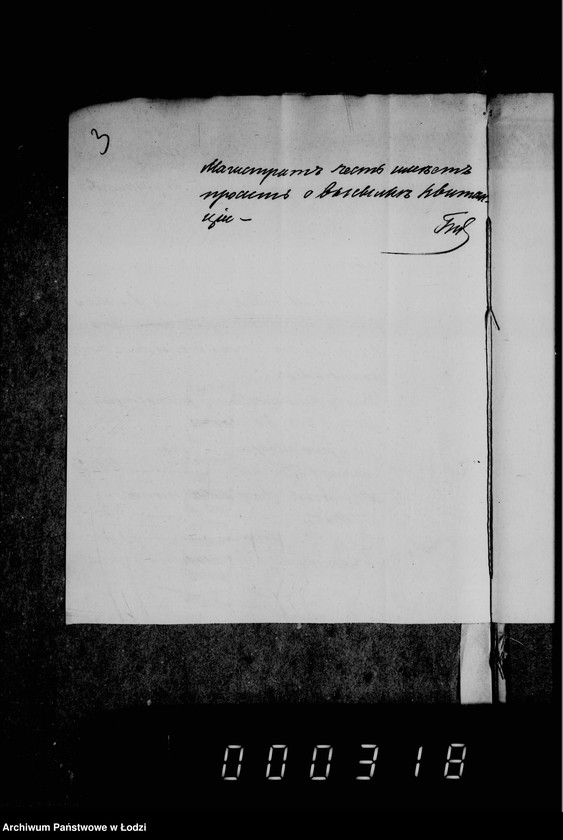 3
Магистратъ честь имѣетъ
просить о высылкѣ квитан
ціи —
000318
Archiwum Państwowe w Łodzi